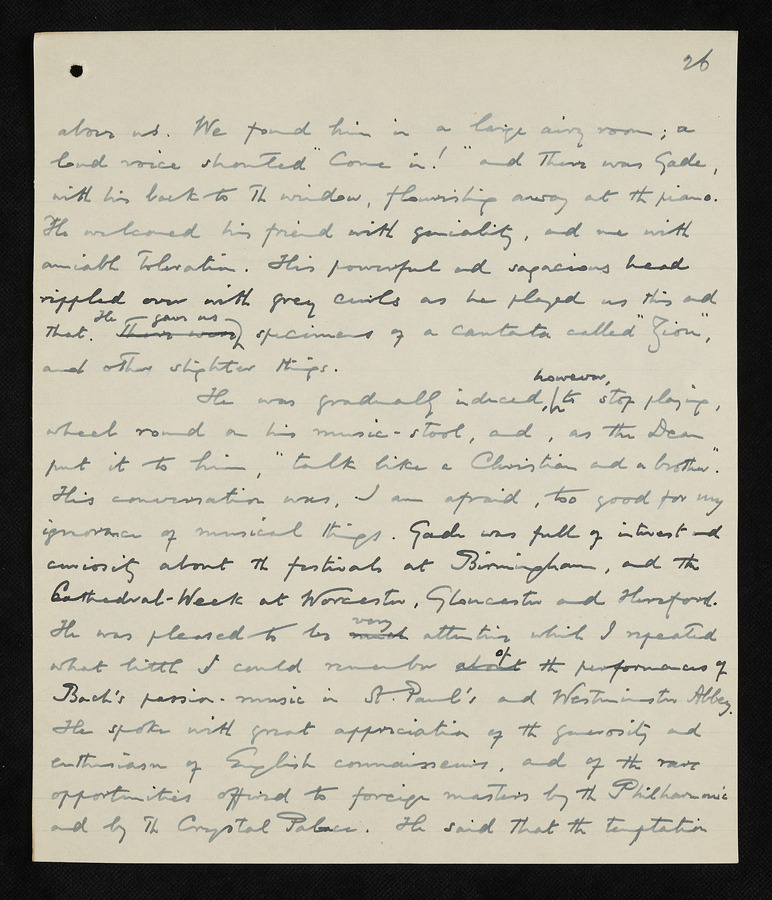 26
above us. We found him in a large airy room; a
loud voice shouted "Come in!" and there was Gade,
with his back to the window, flourishing away at the piano.
He welcomed his friend with geniality, and me with
amiable toleration. His powerful and sagacious head
rippled over with grey curls as he played us this and
He gave us
that. There were specimens of a cantata called "Zion",
and other slighter things.
however,
He was gradually induced, to stop playing,
wheel round on his music-stool, and, as the Dean
put it to him, "talk like a Christian and a brother".
His conversation was, I am afraid, too good for my
ignorance of musical things. Gade was full of interest and
curiosity about the festivals at Birmingham, and the
Cathedral-Week at Worcester, Gloucester and Hereford.
very
He was pleased to be much attentive while I repeated
of
what little I could remember about the performances of
Bach's passion-music in St. Paul's and Westminster Abbey.
He spoke with great appreciation of the generosity and
enthusiasm of English connaisseurs, and of the rare
opportunities offered to foreign masters by the Philharmonic
and by the Crystal Palace. He said that the temptation